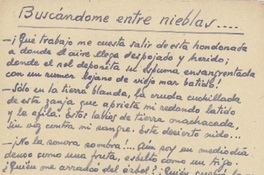 Buscándome entre nieblas....
—¡Qué trabajo me cuesta salir de esta hondonada
a donde el aire llega despojado y herido;
donde el sol deposita su espuma ensangrentada
con un rumor lejano de viejo mar batido!
—Sólo en la tierra blanda, la cruda cuchillada
de esta zanja que aprieta mi redondo latido
y la afila. Estos labios de tierra amachacada,
sin voz contra mi sangre. Este desierto nido...
—¡No la sonora sombra!.. Quién soy un mediodía
denso como una fruta, esbelto como un trigo.
¡Quién me arrancó del árbol!